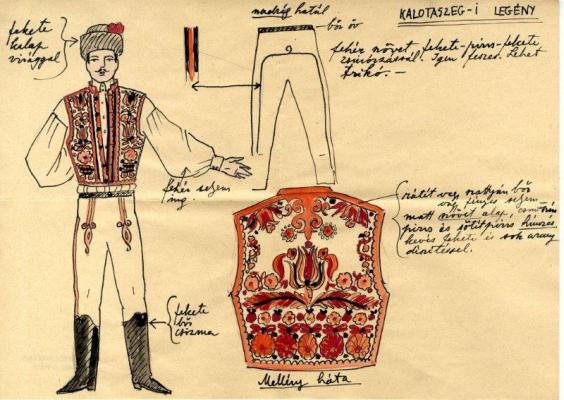 KALOTASZEG-I LEGÉNY
fekete
kalap
virággal
nadrág hátul
bőr öv
fehér szövet, fekete-piros-fekete
zsinórozással. Igen feszes. Lehet
trikó. —
fehér selyem
ing
rátét vagy nagyon bő
fényes selyem-
matt szövet alap,
piros és sötétpiros hímzés
kevés fekete és sok arany
díszítéssel.
fekete
bőr
csizma
Mellény háta